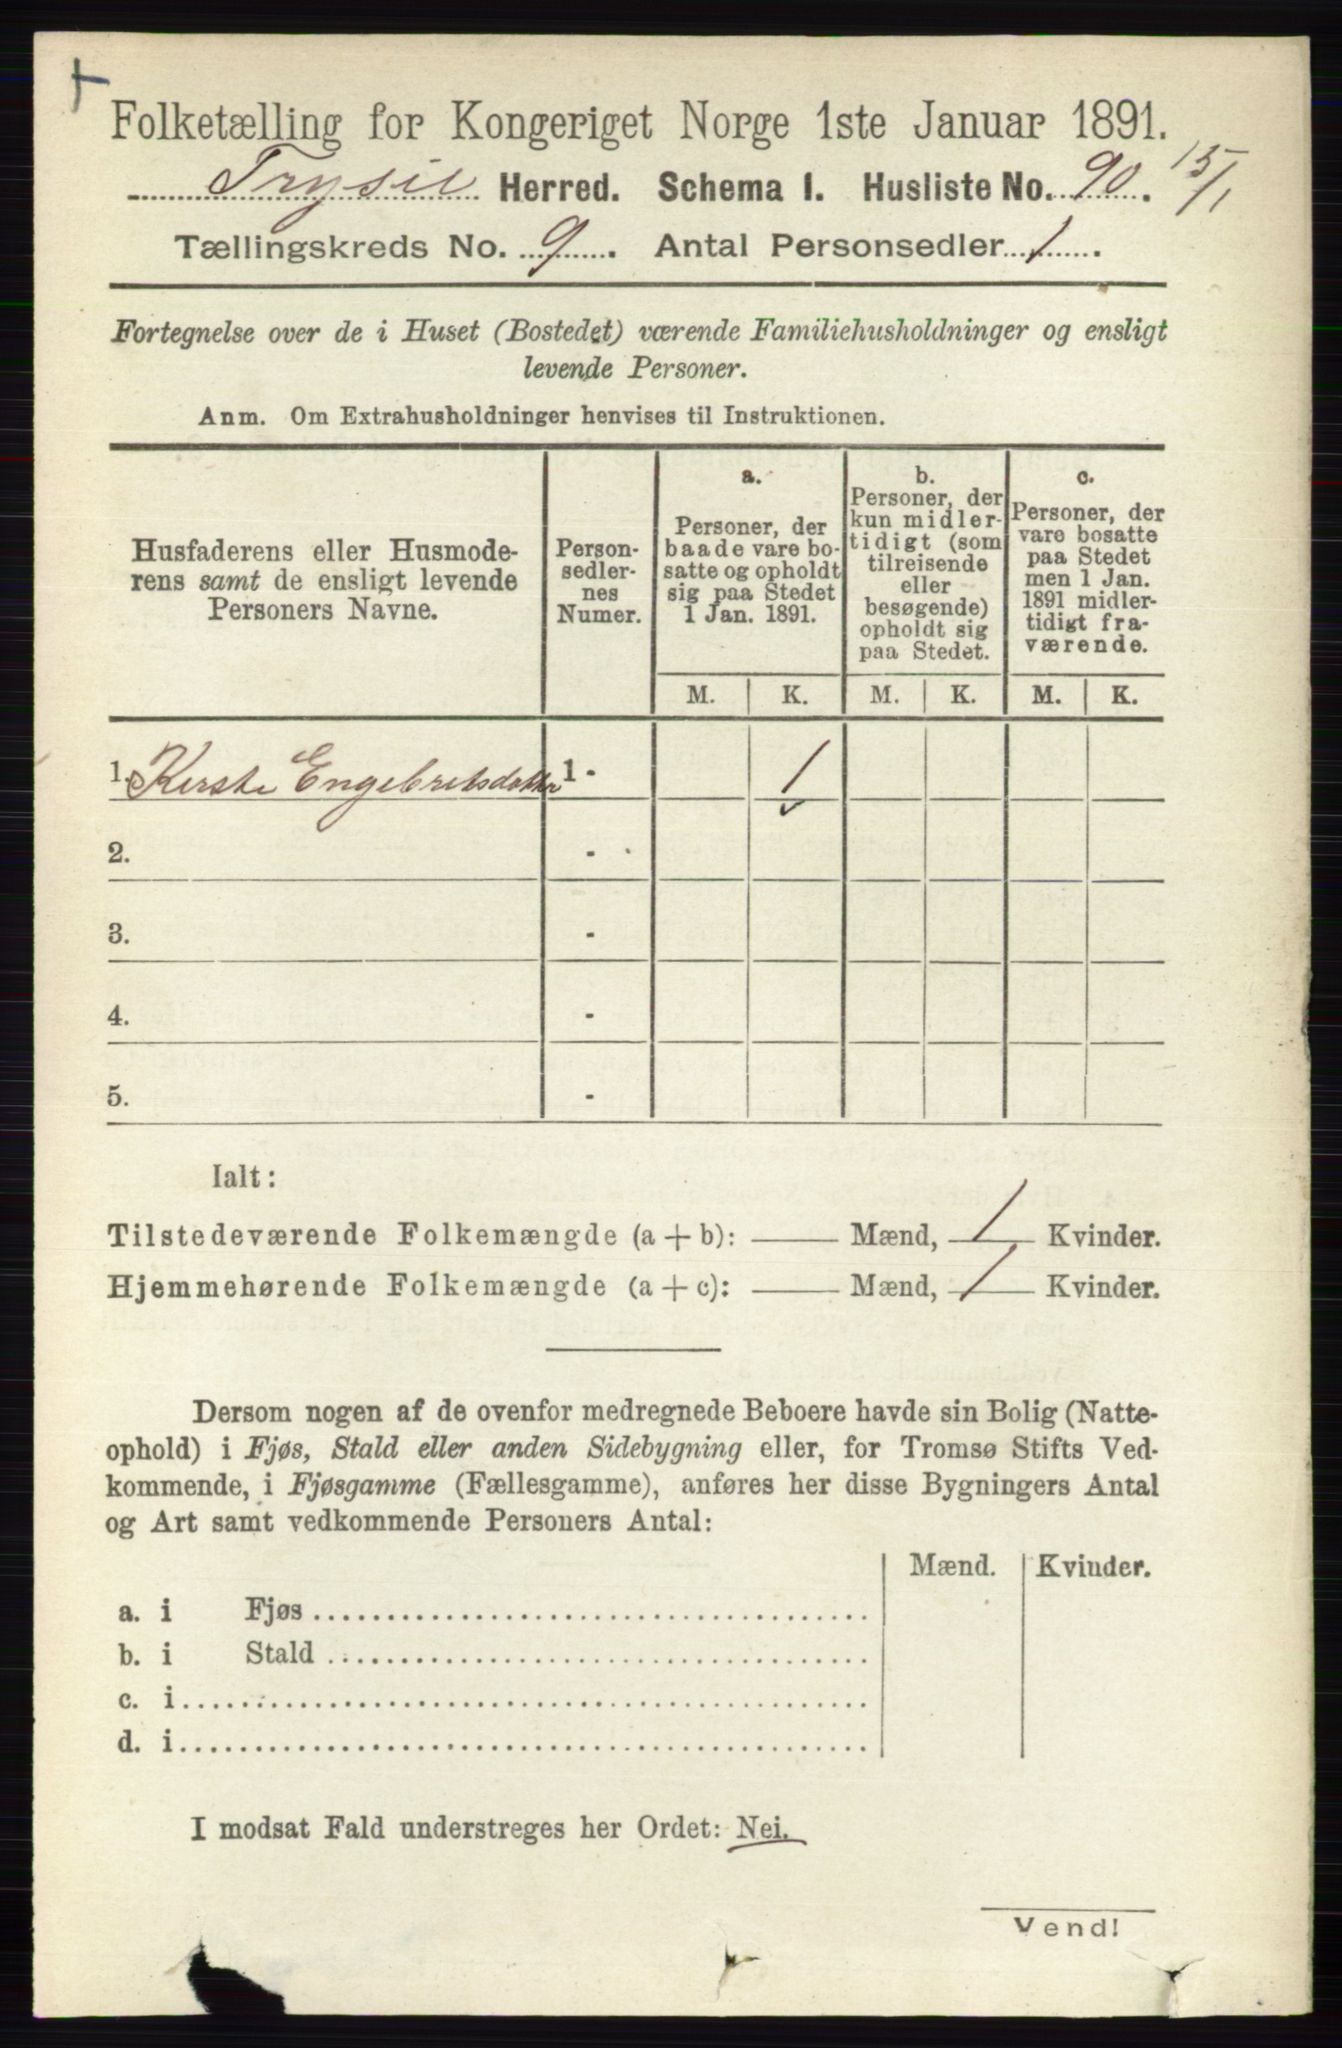 Folketælling for Kongeriget Norge 1ste Januar 1891.
Trysil Herred. Schema 1. Husliste No. 90. 15/1
Tællingskreds No. 9. Antal Personsedler 1.
Fortegnelse over de i Huset (Bostedet) værende Familiehusholdninger og ensligt
levende Personer.
Anm. Om Extrahusholdninger henvises til Instruktionen.
Husfaderens eller Husmode-
rens samt de ensligt levende
Personers Navne.
Person-
sedler-
nes
Numer.
a.
Personer, der
baade vare bo-
satte og opholdt
sig paa Stedet
1 Jan. 1891.
b.
Personer, der
kun midler-
tidigt (som
tilreisende
eller
besøgende)
opholdt sig
paa Stedet.
c.
Personer, der
vare bosatte
paa Stedet
men 1 Jan.
1891 midler-
tidigt fra-
værende.
M. K. M. K. M. K.
1. Kerste Engebretsdatter 1 - 1
2. -
3. -
4. -
5. -
Ialt:
Tilstedeværende Folkemængde (a + b): Mænd, 1 Kvinder.
Hjemmehørende Folkemængde (a + c): Mænd, 1 Kvinder.
Dersom nogen af de ovenfor medregnede Beboere havde sin Bolig (Natte-
ophold) i Fjøs, Stald eller anden Sidebygning eller, for Tromsø Stifts Ved-
kommende, i Fjøsgamme (Fællesgamme), anføres her disse Bygningers Antal
og Art samt vedkommende Personers Antal:
Mænd. Kvinder.
a. i Fjøs
b. i Stald
c. i
d. i
I modsat Fald understreges her Ordet: Nei.
Vend!